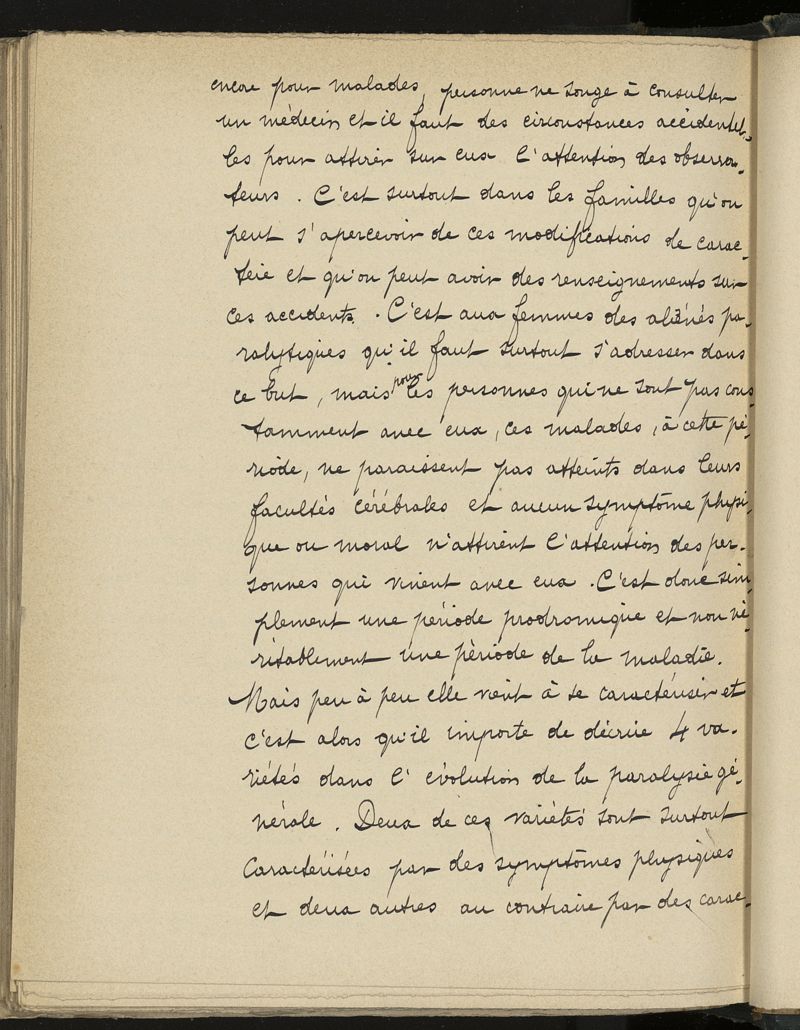 encore pour malades, personne ne songe à consulter
un médecin et il faut des circonstances accidentel-
les pour attirer sur eux l'attention des observa-
teurs. C'est surtout dans les familles qu'on
peut s'apercevoir de ces modifications de carac-
tère et qu'on peut avoir des renseignements sur
ces accidents. C'est aux femmes des aliénés pa-
ralytiques qu'il faut surtout s'adresser dans
ce but, mais pour les personnes qui ne sont pas cons-
tamment avec eux, ces malades, à cette pé-
riode, ne paraissent pas atteints dans leurs
facultés cérébrales et aucun symptôme physi-
que ou moral n'attirent l'attention des per-
sonnes qui vivent avec eux. C'est donc sim-
plement une période prodromique et non vé-
ritablement une période de la maladie.
Mais peu à peu elle vient à se caractériser et
c'est alors qu'il importe de décrire 4 va-
riétés dans l'évolution de la paralysie gé-
nérale. Deux de ces variétés sont surtout
caractérisées par des symptômes physiques
et deux autres au contraire par des carac-